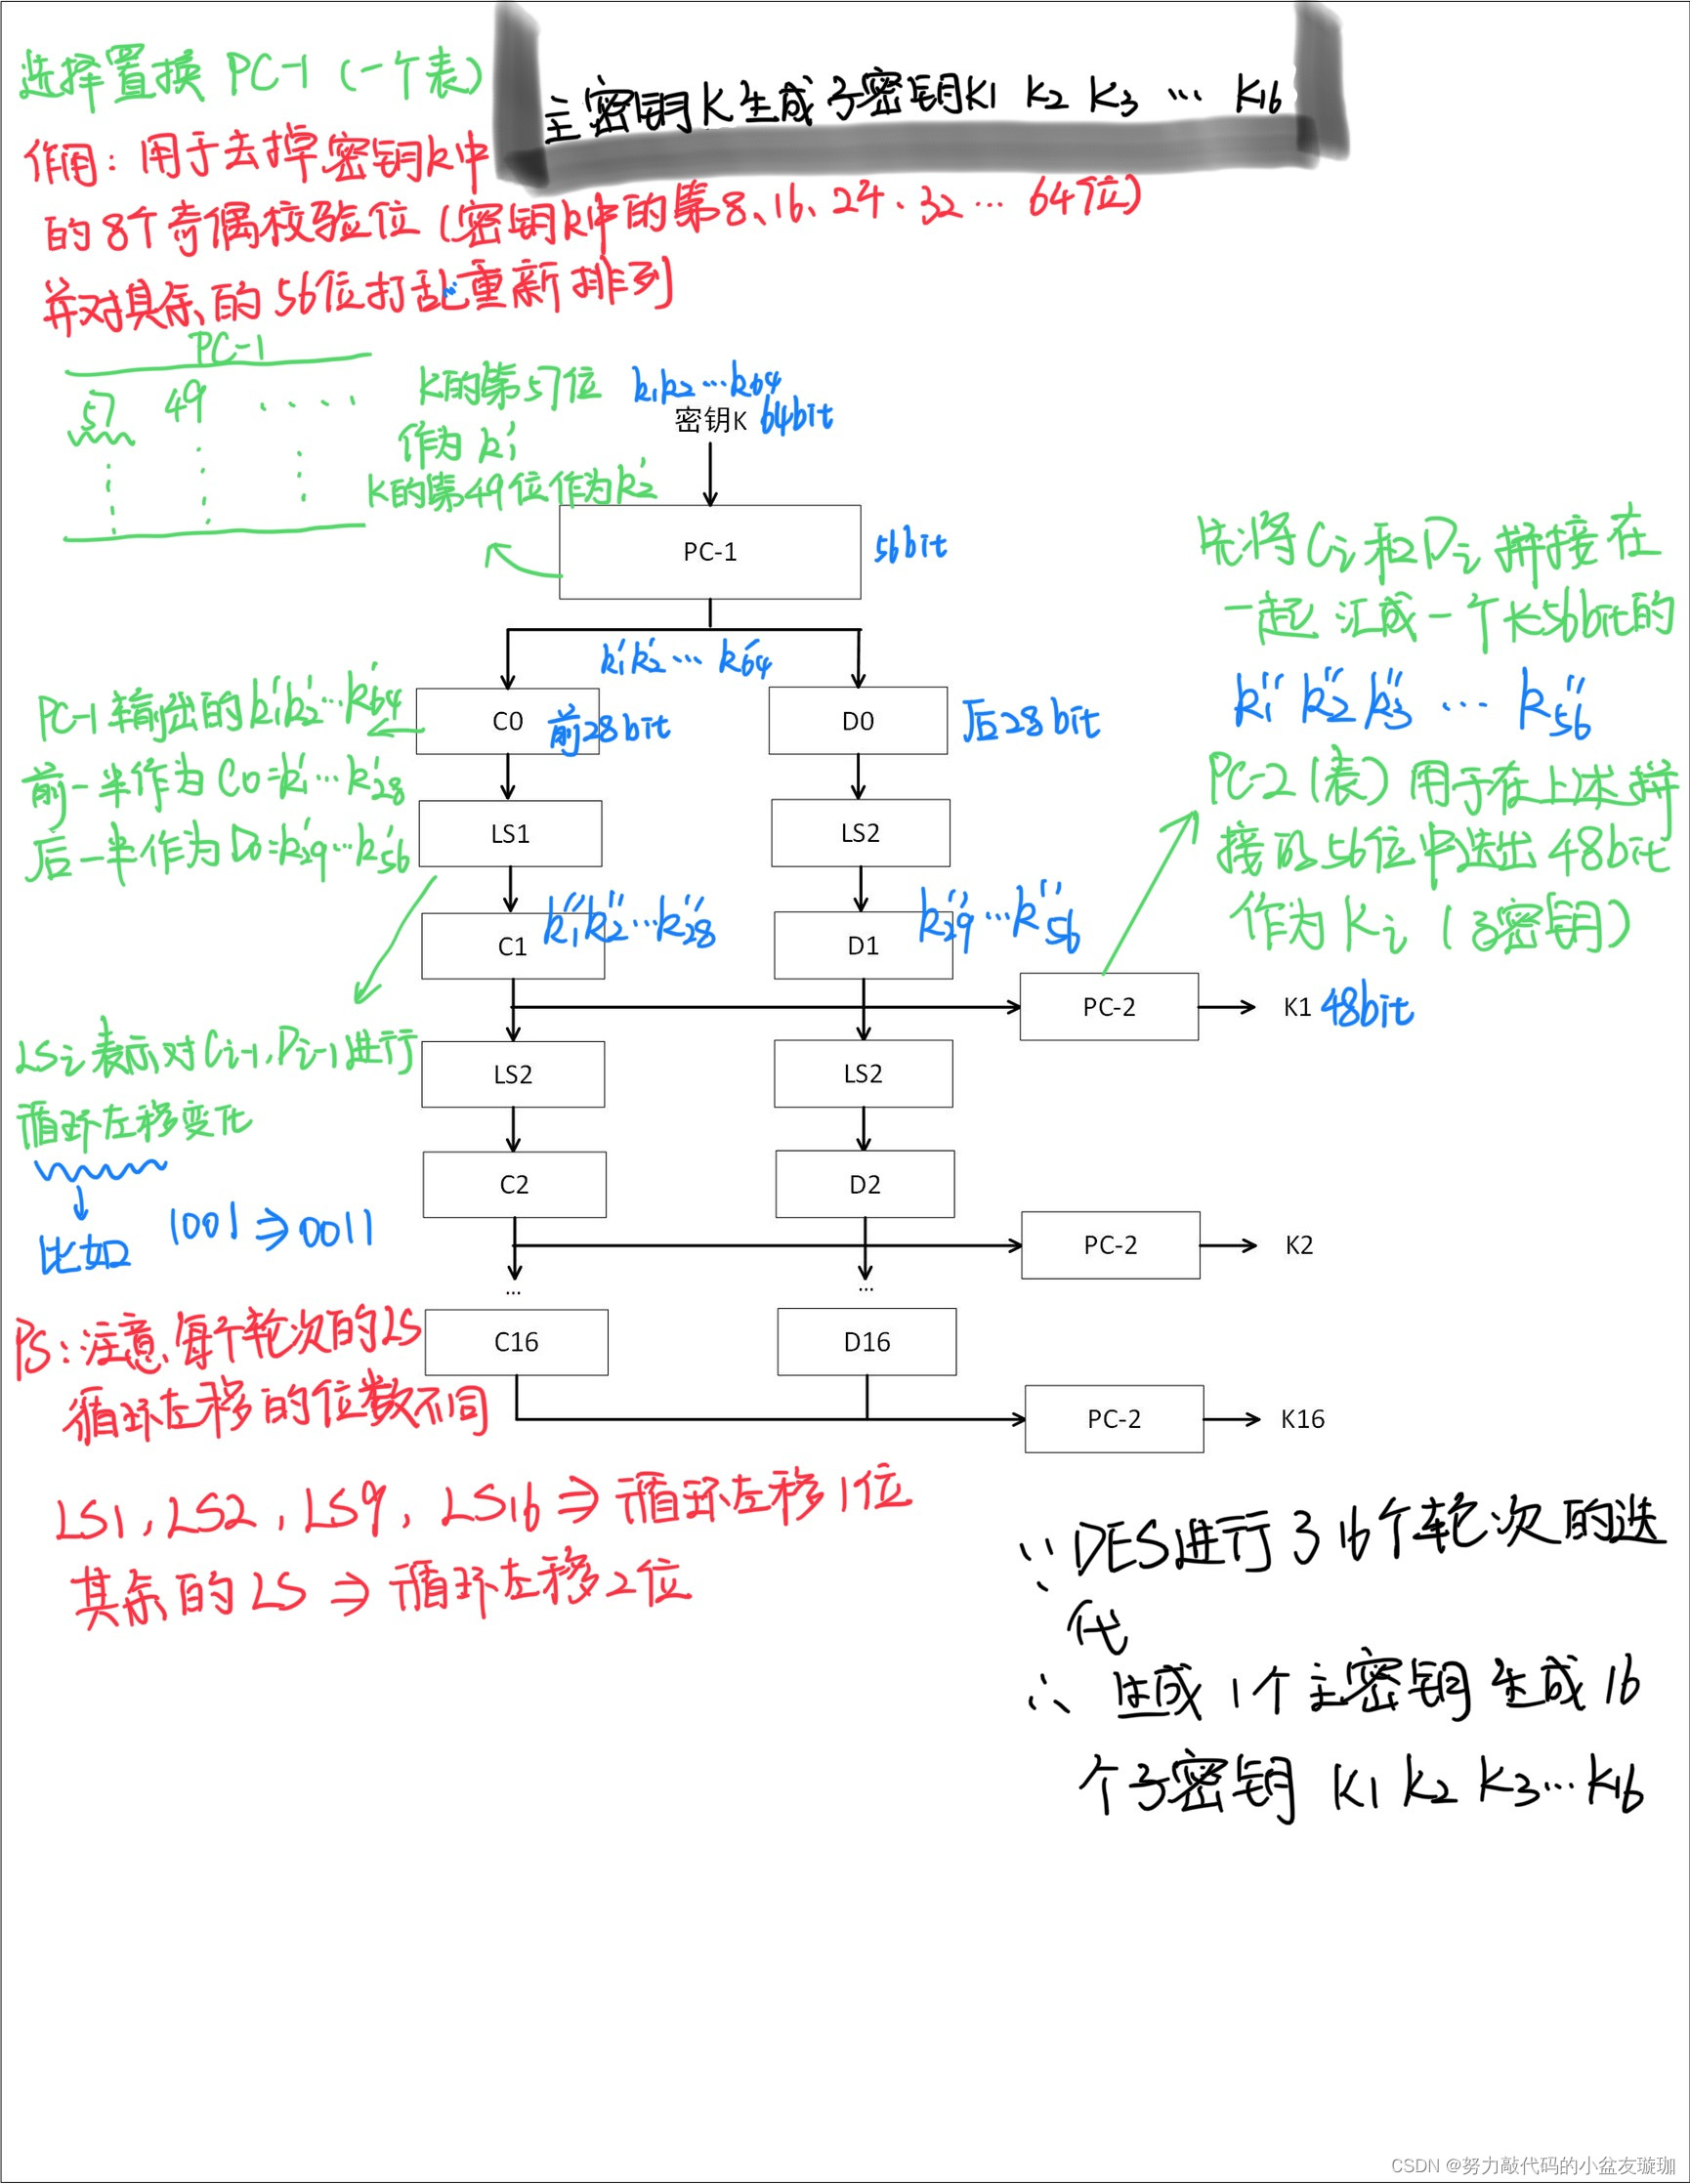 主密钥K生成子密钥K1 K2 K3 … K16
选择置换 PC-1 (一个表)
作用: 用于去掉密钥k中
的8个奇偶校验位 (密钥k中的第8、16、24、32… 64位)
并对其余的56位打乱重新排列
PC-1
57 49 ....
K的第57位
作为 k₁'
K的第49位作为k₂'
k₁k₂…k₆₄
密钥K 64bit
PC-1 56bit
k₁'k₂'… k₆₄'
C0 前28bit
D0 后28bit
PC-1输出的k₁'k₂'…k₆₄'
前一半作为 C0=k₁'…k₂₈'
后一半作为 D0=k₂₉'…k₅₆'
LS1
LS2
C1 k₁''k₂''…k₂₈''
D1 k₂₉''…k₅₆''
先将 Ci 和 Di 拼接在
一起 汇成一个长56bit的
k₁'' k₂'' k₃'' … k₅₆''
PC-2 (表) 用于在上述拼
接的56位中选出 48bit
作为 Ki (子密钥)
PC-2 K1 48bit
LSi 表示对Ci-1,Di-1进行
循环左移变化
比如 1001 ⇒ 0011
LS2
LS2
C2
D2
PC-2 K2
...
...
C16
D16
PC-2 K16
PS: 注意,每个轮次的LS
循环左移的位数不同
LS1, LS2, LS9, LS16 ⇒ 循环左移1位
其余的 LS ⇒ 循环左移2位
∵ DES进行了16个轮次的迭
代
∴ 生成 1个主密钥生成 16
个子密钥 K1 K2 K3…K16
CSDN @努力敲代码的小盆友璇珈